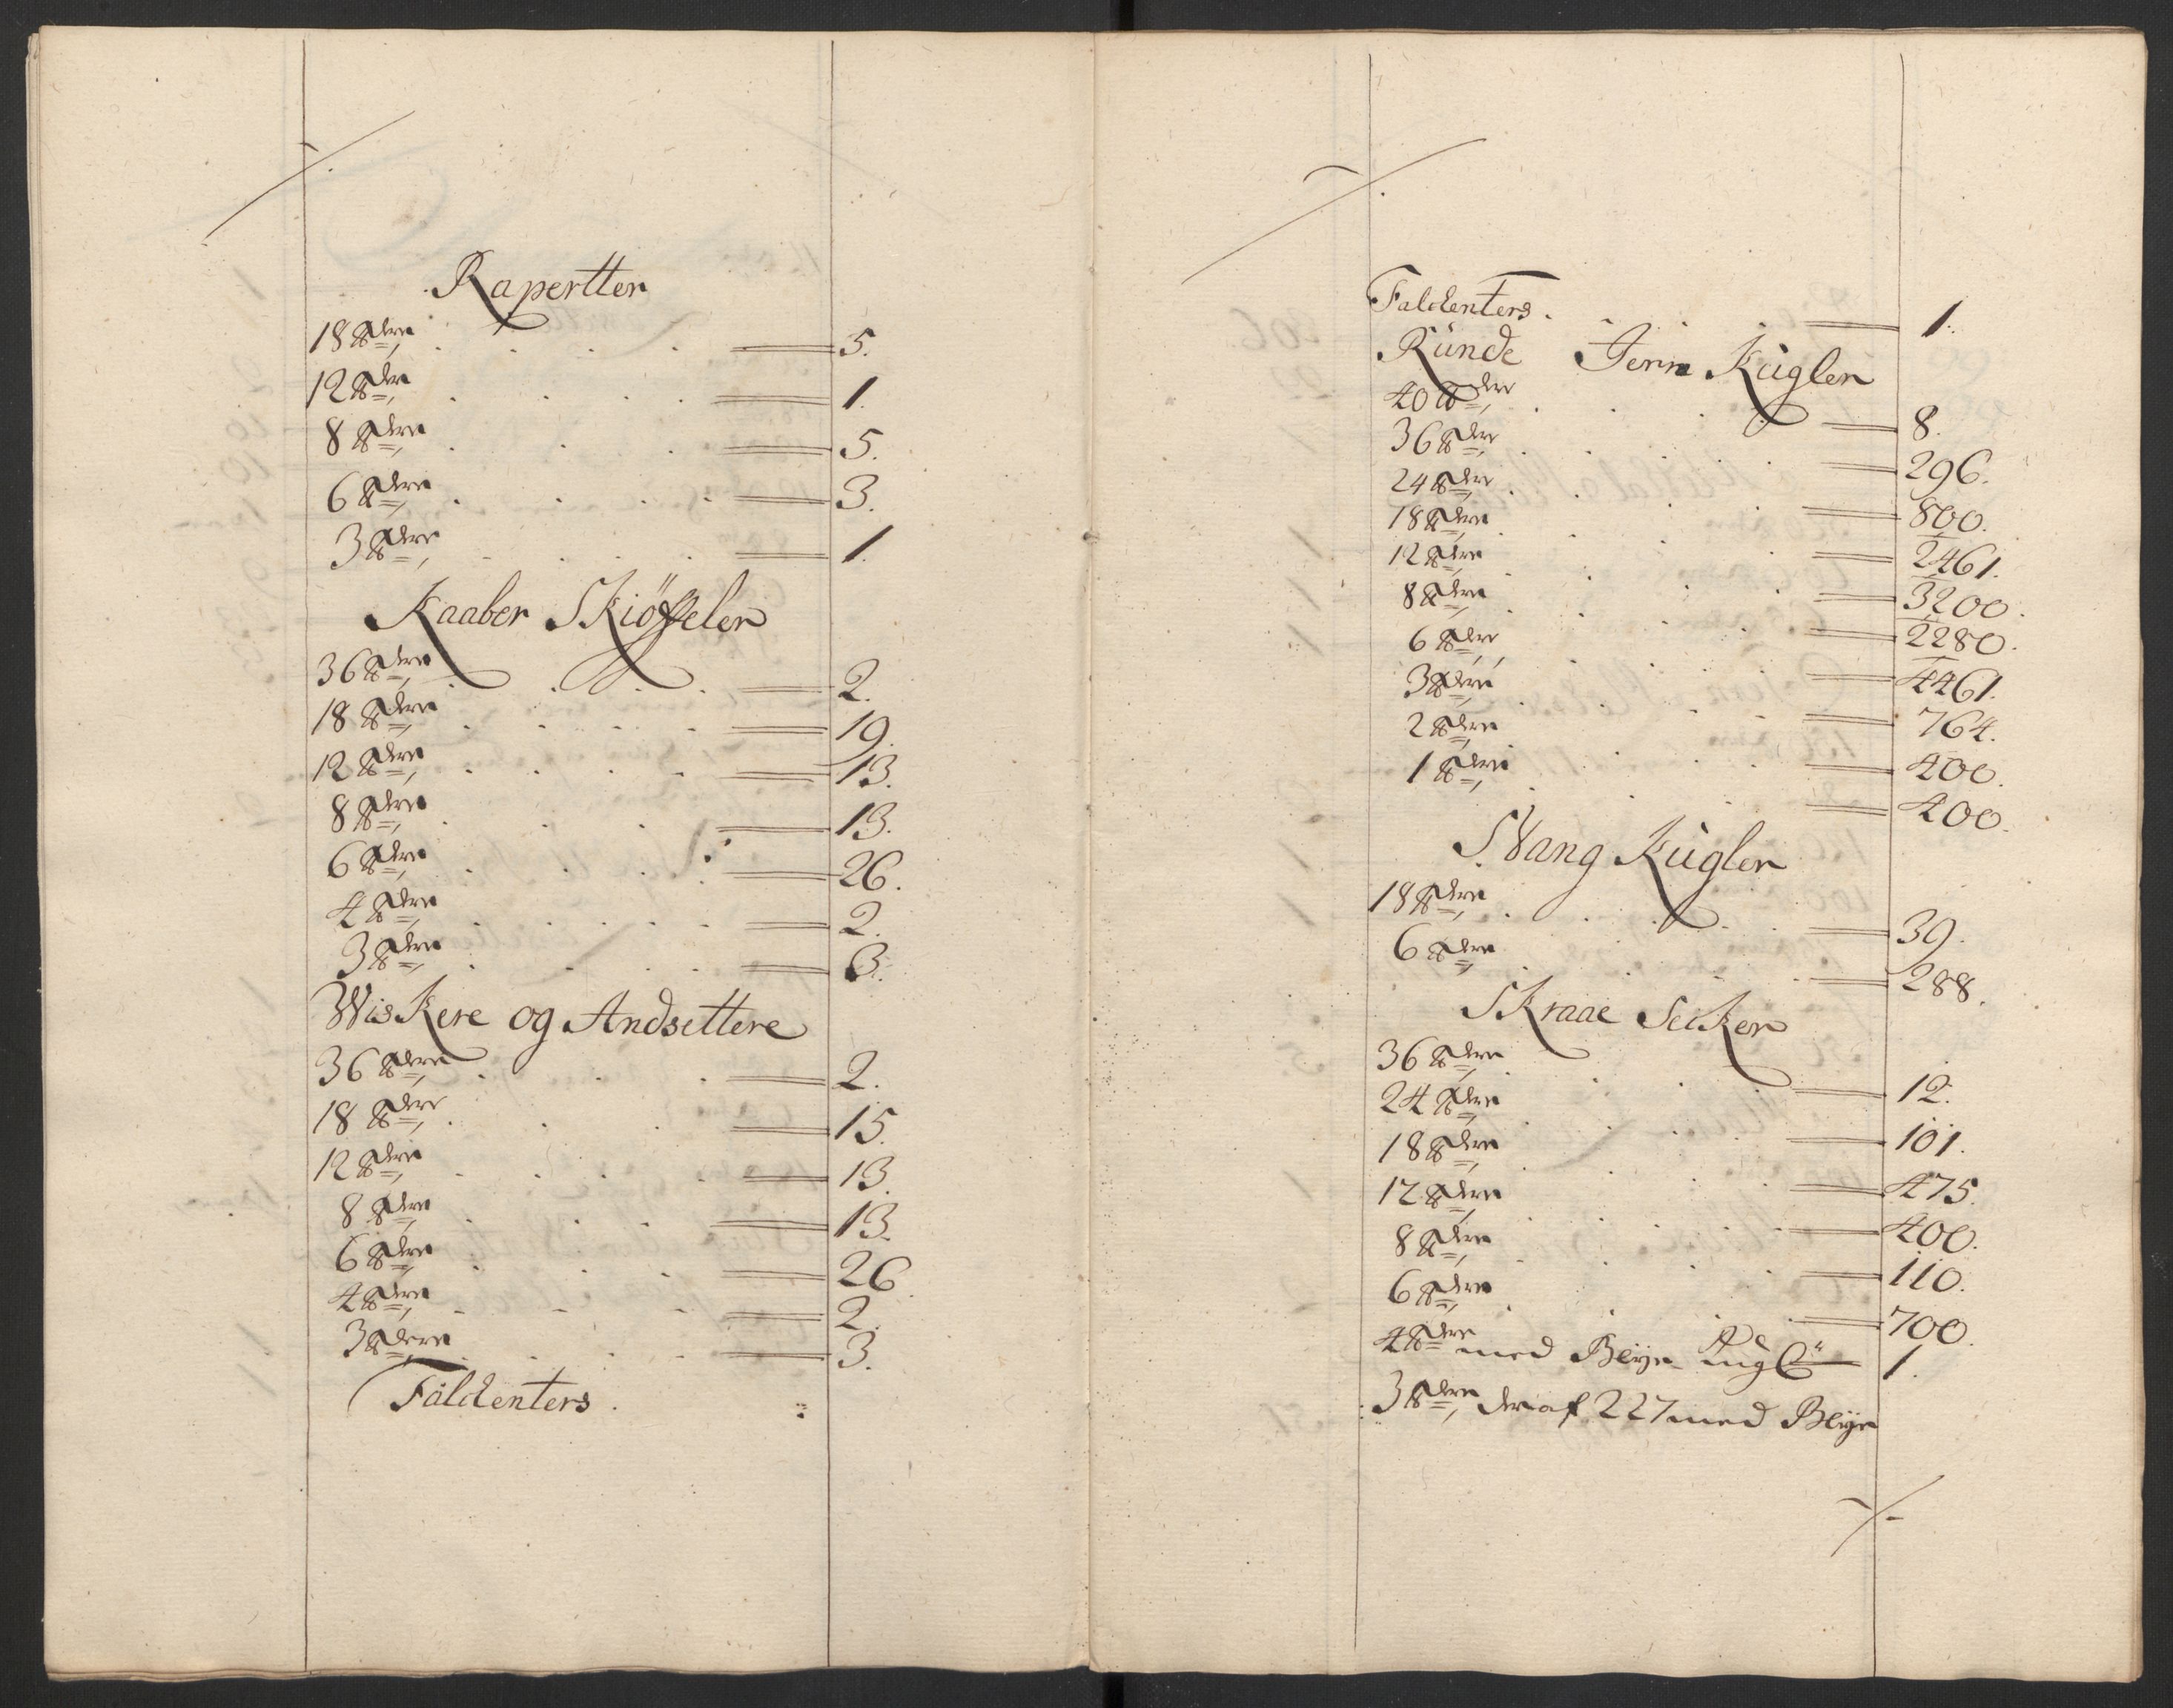 Rapertter
18 ℔dere 5.
12 ℔der 1.
8 ℔dere 5.
6 ℔dere 3.
3 ℔dere 1.
Kaaber Skiöffeler
36 ℔dere 2.
18 ℔dere 19.
12 ℔dere 13.
8 ℔dere 13.
6 ℔dere 26.
4 ℔dere 2.
3 ℔dere 3.
Wiskere og Andsettere
36 ℔dere 2.
18 ℔dere 15.
12 ℔dere 13.
8 ℔dere 13.
6 ℔dere 26.
4 ℔dere 2.
3 ℔dere 3.
Falckenters.
Falckenters. 1.
Runde Jern Kugler
40 ℔der 8.
36 ℔der 296.
24 ℔der 800.
18 ℔dere 2461.
12 ℔dere 3200.
8 ℔dere 2280.
6 ℔der 4461.
3 ℔dere 764.
2 ℔dere 400.
1 ℔dere 400.
Stang Kugler
18 ℔dere 39.
6 ℔dere 288.
Skraae Secker
36 ℔dere 12.
24 ℔dere 101.
18 ℔dere 475.
12 ℔dere 400.
8 ℔dere 110.
6 ℔dere 700.
4 ℔dere med Blye 1.
3 ℔dere, deraf 227 med Blye